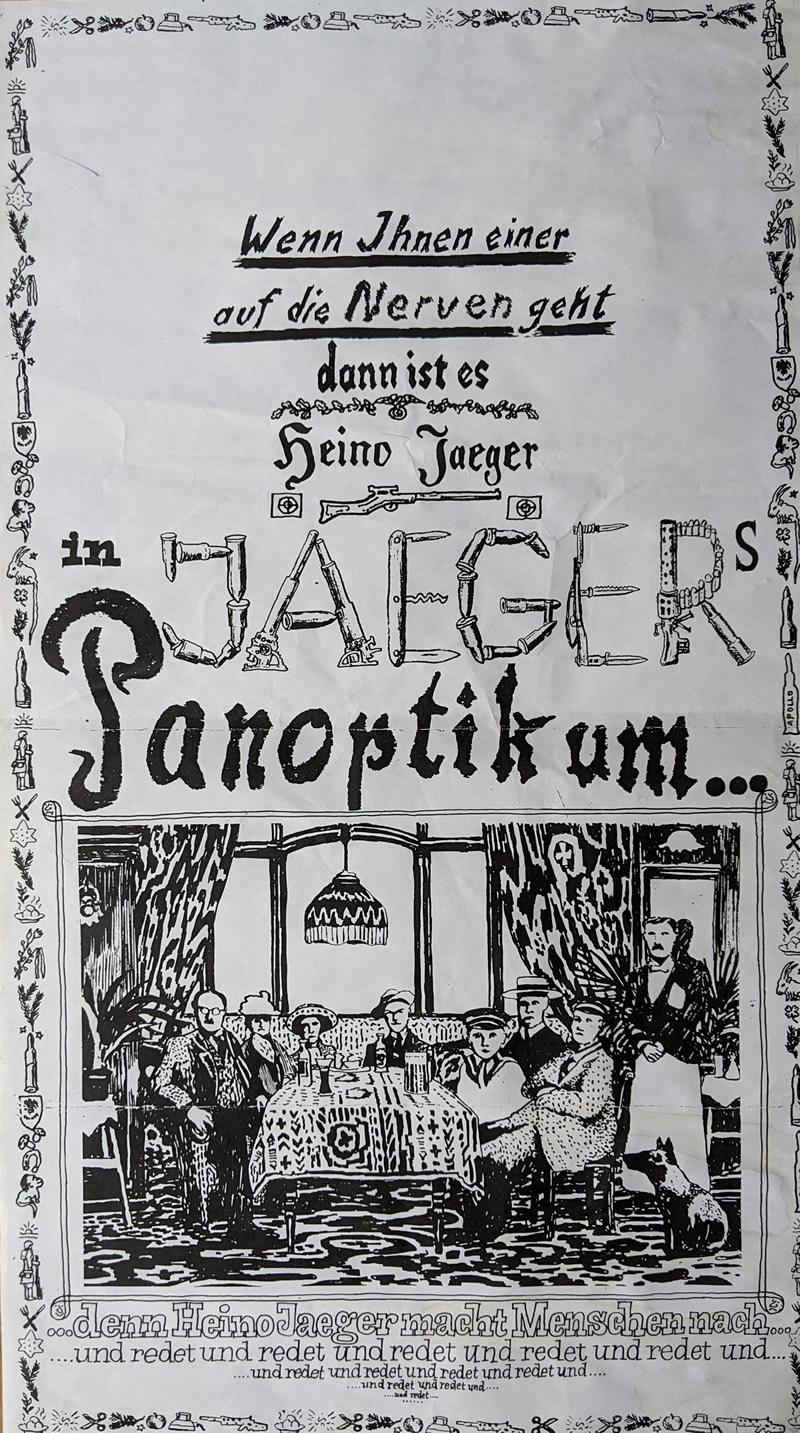 Wenn Ihnen einer
auf die Nerven geht
dann ist es
Heino Jaeger
in JAEGERS
Panoptikum...
APOLLO
...denn Heino Jaeger macht Menschen nach...
....und redet und redet und redet und redet und redet und...
....und redet und redet und redet und redet und....
....und redet und redet und....
....und redet....